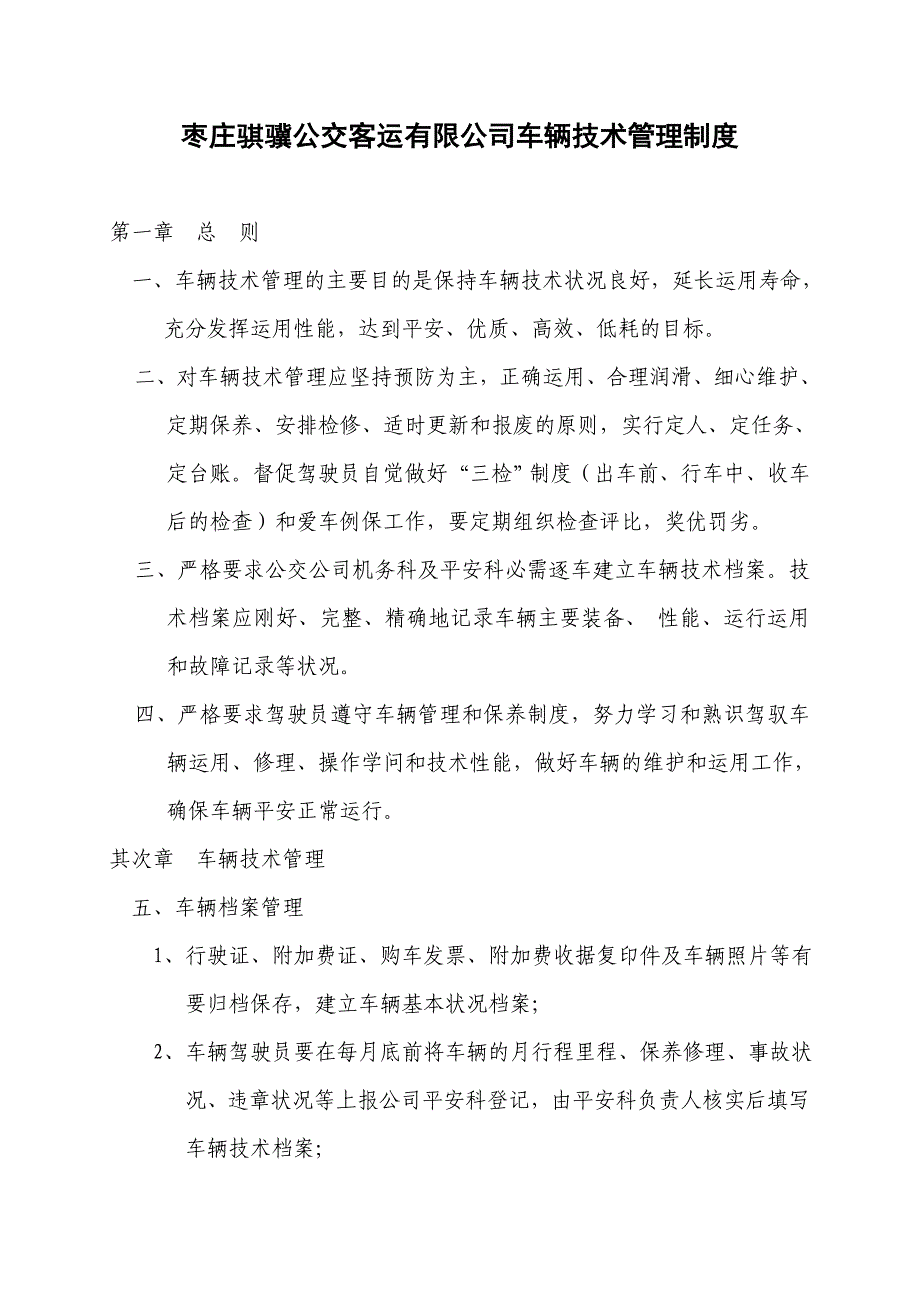 枣庄骐骥公交客运有限公司车辆技术管理制度
第一章　总　则
一、车辆技术管理的主要目的是保持车辆技术状况良好，延长运用寿命，
充分发挥运用性能，达到平安、优质、高效、低耗的目标。
二、对车辆技术管理应坚持预防为主，正确运用、合理润滑、细心维护、
定期保养、安排检修、适时更新和报废的原则，实行定人、定任务、
定台账。督促驾驶员自觉做好“三检”制度（出车前、行车中、收车
后的检查）和爱车例保工作，要定期组织检查评比，奖优罚劣。
三、严格要求公交公司机务科及平安科必需逐车建立车辆技术档案。技
术档案应刚好、完整、精确地记录车辆主要装备、 性能、运行运用
和故障记录等状况。
四、严格要求驾驶员遵守车辆管理和保养制度，努力学习和熟识驾驭车
辆运用、修理、操作学问和技术性能，做好车辆的维护和运用工作，
确保车辆平安正常运行。
其次章　车辆技术管理
五、车辆档案管理
1、行驶证、附加费证、购车发票、附加费收据复印件及车辆照片等有
要归档保存，建立车辆基本状况档案；
2、车辆驾驶员要在每月底前将车辆的月行程里程、保养修理、事故状
况、违章状况等上报公司平安科登记，由平安科负责人核实后填写
车辆技术档案；